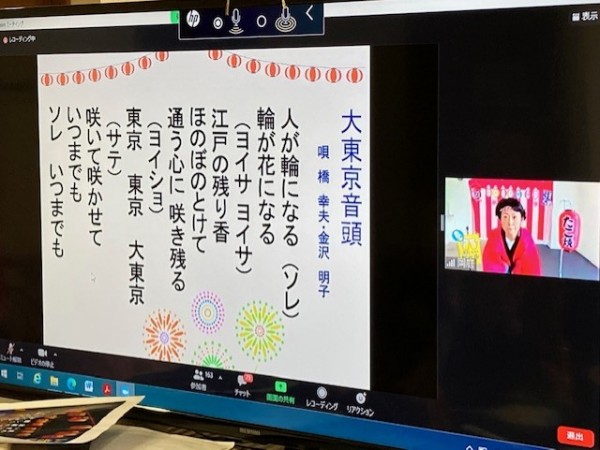 レコーディング中
hp
表示
大東京音頭
唄 橋 幸夫・金沢 明子
人が輪になる (ソレ)
輪が花になる
(ヨイサ ヨイサ)
江戸の残り香
ほのぼのとけて
通う心に 咲き残る
(ヨイショ)
東京 東京 大東京
(サテ)
咲いて咲かせて
いつまでも
ソレ いつまでも
たこ焼
ミュート解除
ビデオの停止
163
参加者
チャット
画面の共有
レコーディング
リアクション
退出